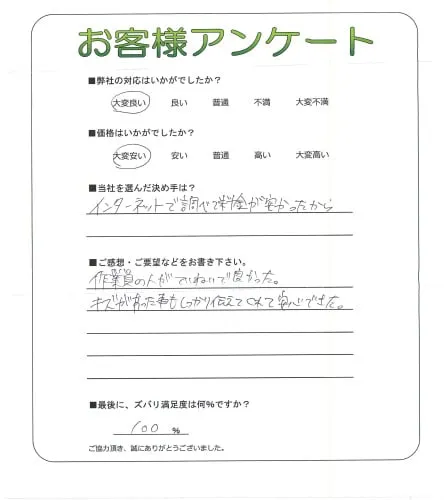 お客様アンケート
■弊社の対応はいかがでしたか?
大変良い 良い 普通 不満 大変不満
■価格はいかがでしたか?
大変安い 安い 普通 高い 大変高い
■当社を選んだ決め手は?
インターネットで調べて料金が安かったから
■ご感想・ご要望などをお書き下さい。
作業員の人がていねいで良かった。
キズが有った事もしっかり伝えてくれて安心できた。
■最後に、ズバリ満足度は何%ですか?
100 %
ご協力頂き、誠にありがとうございました。